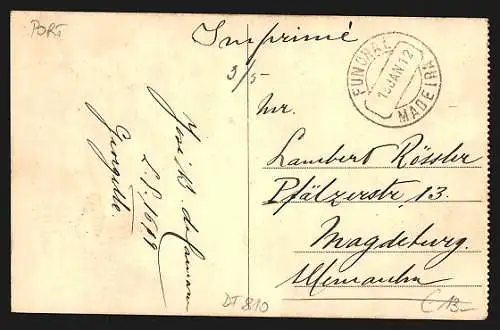 PORT
Imprimé
3/5-
FUNCHAL
13 JAN 12
MADEIRA
Mr.
Lambert Rössler
Pfälzerstr. 13.
Magdeburg.
Allemanha
José
L. P. 1619
DT 810